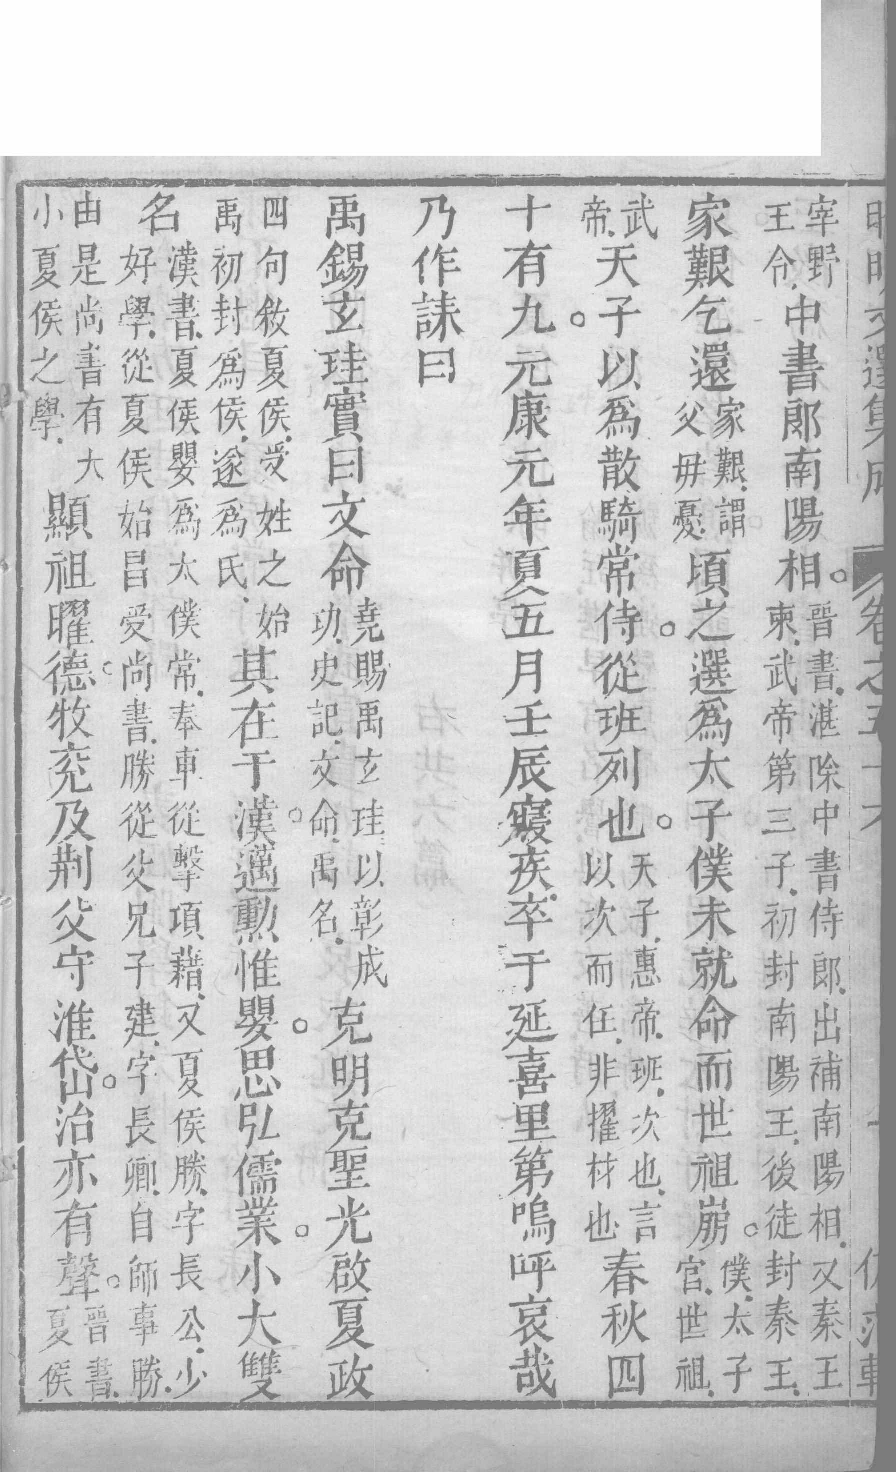 宰野王令中書郎南陽相晉書湛除中書侍郎出補南陽相又秦王柬武帝第三子初封南陽王後徒封秦王
家艱乞還家艱謂父毋憂頃之選爲太子僕未就命而世祖崩僕太子官世祖
武帝天子以爲散騎常侍從班列也天子惠帝班次也言以次而任非擢材也春秋四
十有九元康元年夏五月壬辰寢疾卒于延喜里第嗚呼哀哉
乃作誄曰
禹錫玄珪實曰文命堯賜禹玄珪以彰成功史記文命禹名克明克聖光啟夏政
四句敘夏侯受姓之始禹初封爲侯遂爲氏其在于漢邁勲惟嬰思弘儒業小大雙
名漢書夏侯嬰爲太僕常奉車從擊項藉又夏侯勝字長公少好學從夏侯始昌受尚書勝從父兄子建字長卿自師事勝
由是尚書有大小夏侯之學顯祖曜德牧兖及荆父守淮岱治亦有聲晉書夏侯